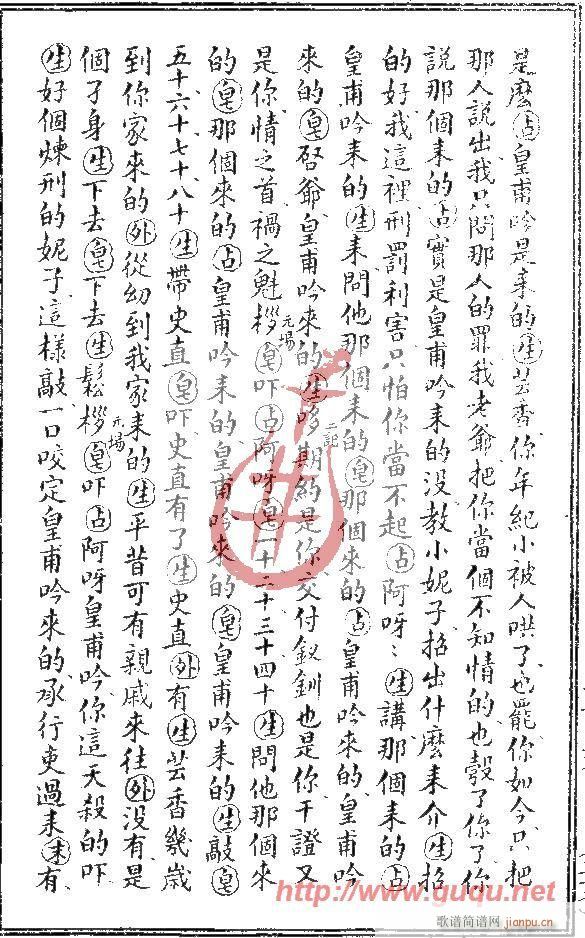 是麽占皇甫吟是来的生芸香你年紀小被人哄了也罷你如今只把
那人說出我只問那人的罪我老爺把你當個不知情的也彀了你了你
說那個来的占實是皇甫吟来的没教小妮子招出什麽来介生招
的好我這裡刑罰利害只怕你當不起占阿呀〻生講那個来的占
皇甫吟来的生来問他那個来的皂那個來的占皇甫吟來的皇甫吟
來的皂啓爺皇甫吟來的生哆期約是你交付釵釧也是你干證又
是你情之首禍之魁桚元場皂吓占阿呀皂一十二十三十四十生問他那個來
的皂那個來的占皇甫吟来的皇甫吟來的皂皇甫吟来的生敲皂
五十六十七十八十生帶史直皂吓史直有了生史直外有生芸香幾歲
到你家來的外從幼到我家来的生平昔可有親戚來往外没有是
個孑身生下去皂下去生鬆桚元場皂吓占阿呀皇甫吟你這天殺的吓
生好個煉刑的妮子這樣敲一口咬定皇甫吟來的承行吏過来末有
http://www.guqu.net
歌谱简谱网
jianpu.cn